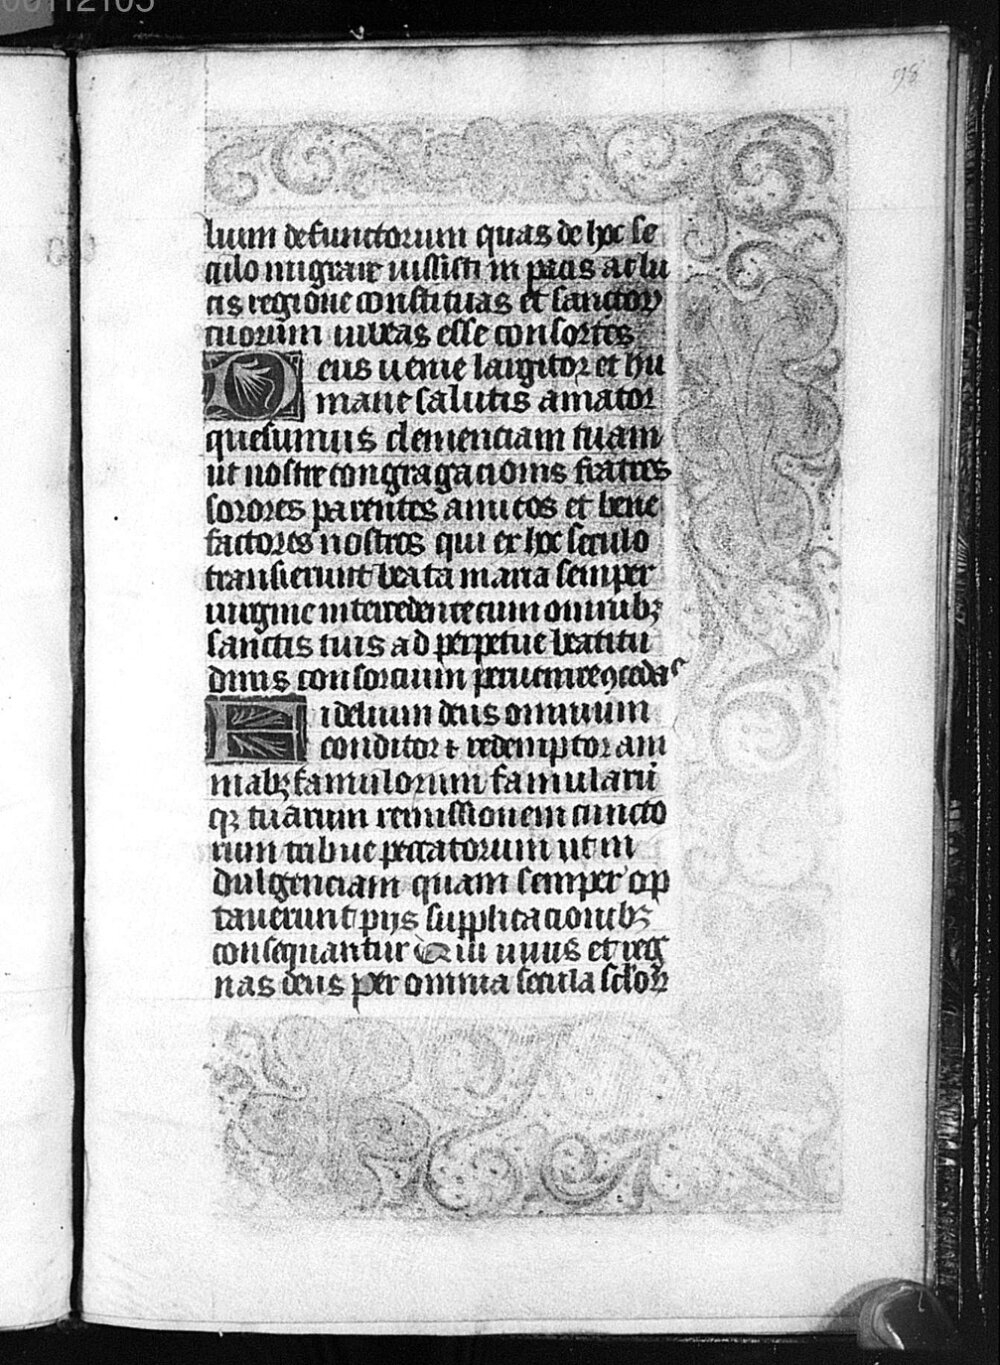 00112105
98
lium defunctorum quas de hoc se
culo migrare iussisti in pacis ac lu
cis regione constituas et sanctorꝝ
tuorum iubeas esse consortes
Deus uenie largitor et hu
mane salutis amator
quesumus clemenciam tuam
ut nostre congragacionis fratres
sorores parentes amicos et bene
factores nostros qui ex hoc seculo
transierunt beata maria semper
uirgine intercedente cum omnibꝫ
sanctis tuis ad perpetue beatitu
dinis consorcium peruenire ꝯcedas
Fidelium deus omnium
conditor ⁊ redemptor ani
mabꝫ famulorum famularū
qꝫ tuarum remissionem cuncto
rum tribue peccatorum ut in
dulgenciam quam semper op
tauerunt pijs supplicacionibꝫ
consequantur Qui uiuis et reg
nas deus per omnia secula sclorꝝ